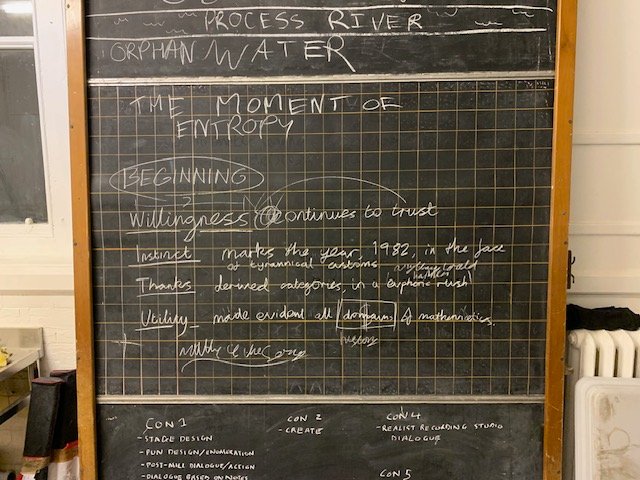 PROCESS RIVER
ORPHAN WATER
THE MOMENT OF
ENTROPY
BEGINNING
Willingness continues to trust
Instinct marks the year, 1982, in the face
of tyrannical customs
Thanks derived categories, in a euphoric rush
Utility made evident all domains of mathematics.
CON 1
- STAGE DESIGN
- PUN DESIGN/ENUMERATION
- POST-MILL DIALOGUE/ACTION
- DIALOGUE BASED ON NOTES
CON 2
- CREATE
CON 4
- REALIST RECORDING STUDIO
DIALOGUE
CON 5